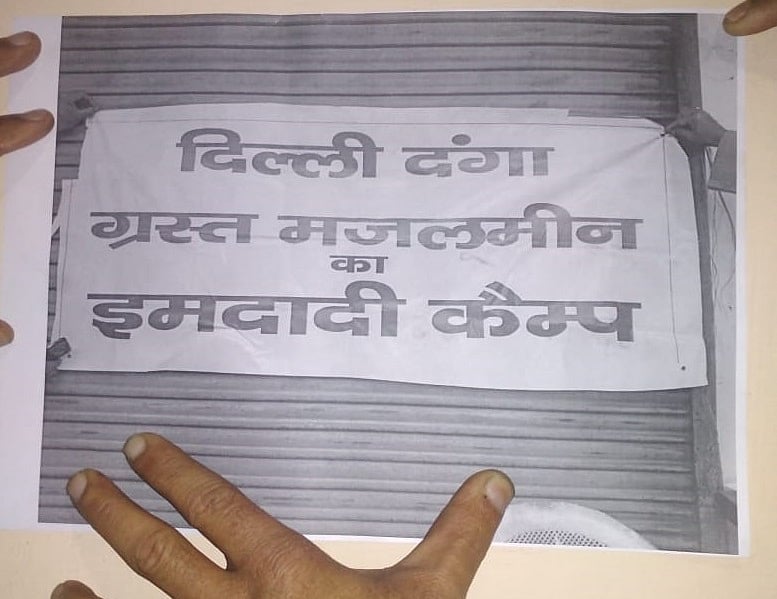 दिल्ली दंगा
ग्रस्त मजलमीन
का
इमदादी कैम्प